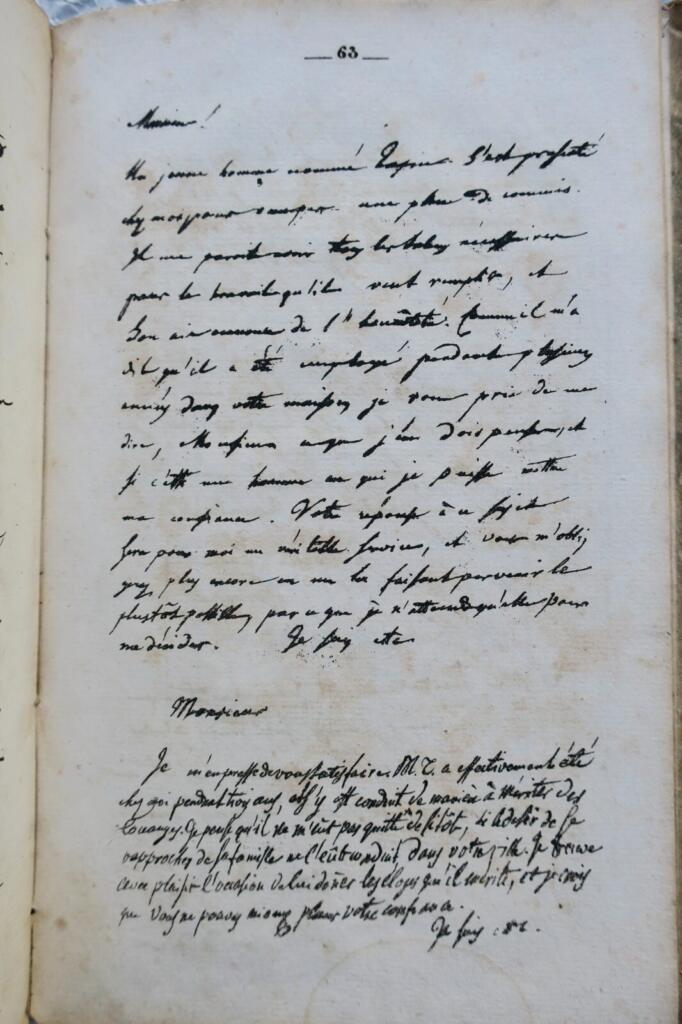 63
Monsieur!
Un jeune homme nommé Lapin. S'est présenté
chez moi pour occuper une place de commis.
Il me paroit avoir tous les talens nécessaires
pour le travail qu'il veut remplir, et
son air annonce de l'honnêteté. Comme il m'a
dit qu'il a été employé pendant plusieurs
années dans votre maison je vous prie de me
dire, Monsieur ce que j'en dois penser, et
si c'est un homme en qui je puisse mettre
ma confiance. Votre réponse à ce sujet
sera pour moi un véritable service, et vous m'obli
gerez plus encore en me la faisant parvenir le
plustôt possible, parce que je n'attends qu'elle pour
me décider. Je suis etc
Monsieur
Je m'empresse de vous satisfaire. M. T. a effectivement été
chez moi pendant trois ans, et s'y est conduit de manière à mériter des
louanges. Je pense qu'il ne m'eût pas quitté de sitôt, si le désir de se
rapprocher de sa famille ne l'eût conduit dans votre ville. Je trouve
avec plaisir l'occasion de lui donner les éloges qu'il mérite, et je crois
que vous ne pouvez mieux placer votre confiance.
Je suis etc.